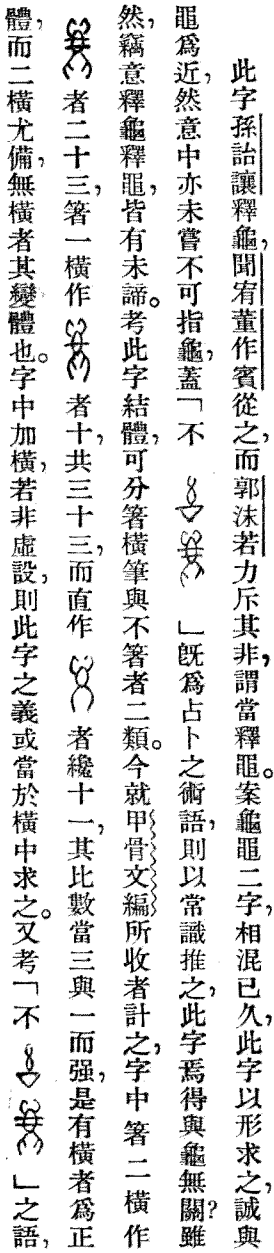 此字孫詒讓釋龜，聞宥董作賓從之，而郭沫若力斥其非，謂當釋黽。案龜黽二字，相混已久，此字以形求之，誠與
黽爲近，然意中亦未嘗不可指龜，蓋「不 」旣爲占卜之術語，則以常識推之，此字焉得與龜無關？雖
然，竊意釋龜釋黽，皆有未諦。考此字結體，可分箸橫筆與不箸者二類。今就甲骨文編所收者計之，字中箸二橫作
者二十三，箸一橫作 者十，共三十三，而直作 者纔十一，其比數當三與一而强，是有橫者爲正
體，而二橫尤備，無橫者其變體也。字中加橫，若非虛設，則此字之義或當於橫中求之。又考「不 」之語，